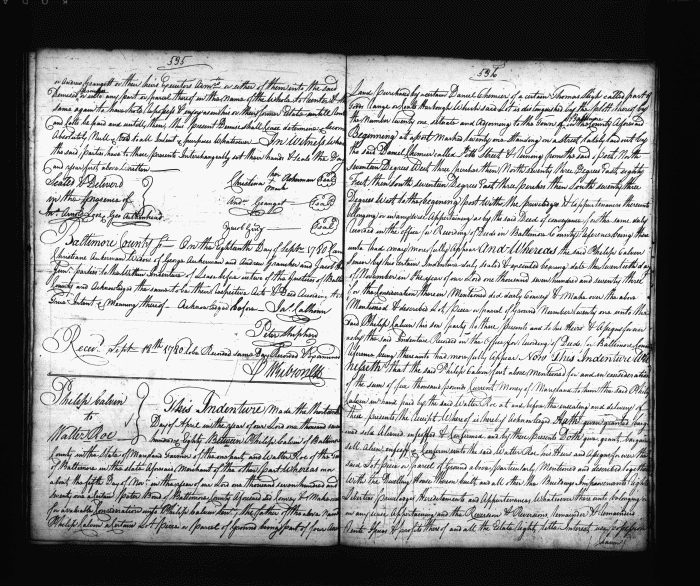 595
or Andrew Grangett or their heirs Executors Adm.rs or either of them unto the said
Demised or unto any part or parcel thereof in the Name of the Whole to reenter & the
same again to have hold repossess & enjoy as in his or their former Estate untill
and Costs be paid and satisfied, then this present Demise shall cease determine & become
Absolutely Null & Void to all Intents & purposes Whatsoever In Witness where
the said parties have to these presents Interchangeably set their hands & Seals the Day
and year first above Written
Sealed & Deliverd
in the presence of
Geo Ackerman
Christiana her mark Ackerman Seal
Andw. Granget Seal
Jacob Seal
Baltimore County ss On the Eighteenth Day of Sept. 1780 Came
Christiana Ackerman Widow of George Ackerman and Andrew Grancher and Jacob
parties to the Within Indenture of Lease before us two of the Justices of Balt
County and Acknowledged the same to be their respective Acts & Deed According to
true Intent & Meaning thereof Acknowledged before Jas. Calhoun
Peter Shepherd
Receiv'd Sept. 18th 1780 to be Record same Day Record & Examined
Wm Gibson Clk
Philip Calvin
to
Walter Roe
This Indenture Made the
Day of April in the year of our Lord one thousand seven
hundred Eighty Between Philip Calvin of Baltimore
County in the State of Maryland of the one part, and Walter Roe of the Town
of Baltimore in the state aforesaid Merchant of the other part Whereas on or
about the fifth Day of Nov.r in the year of our Lord one thousand seven hundred and
seventy one a Certain Peter Bond of Baltimore County aforesaid did convey & Make over
for a valuable Consideration unto Philip Calvin Sen.r the father of the above Named
Philip Calvin a Certain Lot piece or parcel of Ground being part of four acres
596
Land purchased by a certain Daniel Chamier of a certain Thomas Sligh called part of
which said Lot is distinguished by the plott thereof by
the Number twenty one situate and adjoining to the Town of Baltimore in the County aforesaid
Beginning at a post Marked twenty one standing on a street lately laid out by
the said Daniel Chamier called Street & running from the said post North
seventeen Degrees West three perches then North seventy three Degrees East eighty
Feet then South seventeen Degrees East three perches then South seventy three
Degrees West to the beginning post With the priviledges & appurtenances thereunto
belonging or in anywise Appertaining as by the said Deed of conveyance for the same duly
record in the office for Recording of Deeds in Baltimore County reference being there
unto had may more fully Appear And Whereas the said Philip Calvin
Senior by his certain Indenture duly sealed & executed bearing date the twentieth day
of November in the year of our Lord one thousand seven hundred and seventy three
for the Consideration therein Mentioned did duly Convey & Make over the above
Mentioned & described Lot piece or parcel of Ground Number twenty one unto the
said Philip Calvin his son party to these presents and to his Heirs & Assigns forever
as by the said Indenture Record in the Office for recording of Deeds in Baltimore County
aforesaid being thereunto had more fully appear Now This Indenture Wit
nesseth that the said Philip Calvin for & in consideration
of the sum of five thousand pounds Current Money of Maryland to him the said Philip
Calvin in hand paid by the said Walter Roe at and before the sealing and delivery of
these presents the receipt Whereof is hereby Acknowledged Hath given granted bargained
and sold Aliened enfeoffed & Confirmed and by these presents Doth give grant bargain
sell Alien enfeoff & Confirm unto the said Walter Roe his Heirs and Assigns forever the
said Lot piece or parcel of Ground above particularly Mentioned and described together
With the Dwelling House thereon built and all other the Buildings Improvements rights
Liberties Priviledges Hereditaments and Appurtenances Whatsoever thereunto belonging or
in anywise Appertaining and the Reversion & Reversions Remainder & Remainders
Rents Issues & profits thereof and all the Estate right title Interest use possession